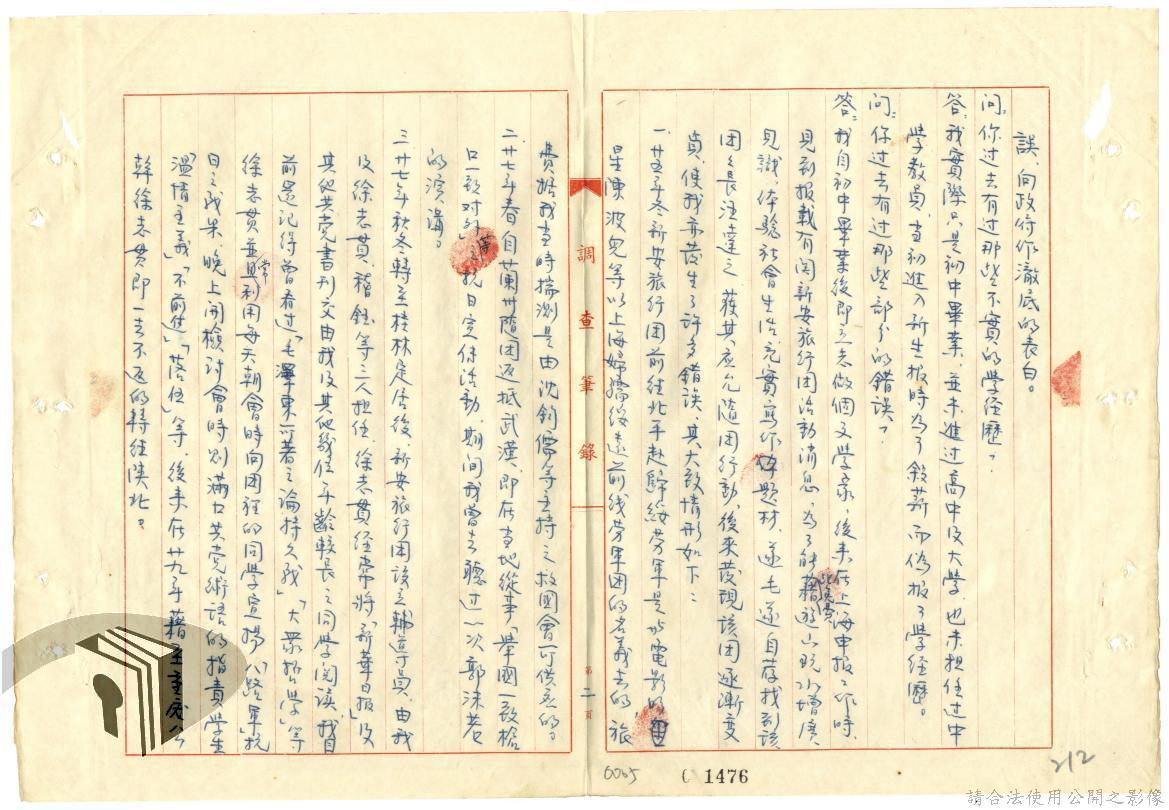 誤，向政府作澈底的表白。
問：你过去有过那些不實的学经歷？
答：我實際只是初中畢業，並未進过高中及大学，也未担任过中
学教員，当初進入新生报時为了敘薪而偽报了学经歷。
問：你过去有过那些部分的錯誤？
答：我自初中畢業後即立志做個文学家，後来在上海申报工作時，
見到报載有関新安旅行团活動消息，为了能藉遊山玩水增廣
見識，体驗社會生活，充實寫作題材，遂毛遂自荐找到該
团团長汪達之，獲其应允随团行動，後來發現該团逐漸变
質，使我亦發生了許多錯誤，其大致情形如下：
一、廿五年冬新安旅行团前往北平赴歸綏劳軍是以電影明
星陳波兒等以上海婦孺綏遠前线劳軍团的名義去的，旅
費据我当時揣測是由沈鈞儒等主持之救國會所供应的。
二、廿七年春自蘭州随团返抵武漢，即在当地從事「舉國一致槍
口一致对外」之抗日宣传活動，期间我曾去聽过一次郭沫若
的演講。
三、廿七年秋冬轉至桂林定居後，新安旅行团設立輔導員，由我
及徐志貫、稽鈺等三人担任，徐志貫经常將「新華日报」及
其他共党書刊交由我及其他幾位年齡較長之同学閱读，我目
前還記得曾看过「毛澤東」所著之論持久戰」「大眾哲学」等
徐志貫並常利用每天朝會時向团裡的同学宣揚「八路軍」抗
日之战果，晚上開檢討會時則滿口共党術語的指責学生
「溫情主義」「不前進」「落伍」等，後来在廿九年藉至重慶公
幹徐志貫即一去不返的轉往陝北。
調查筆錄
第二頁
0065
C 1476
212
請合法使用公開之影像